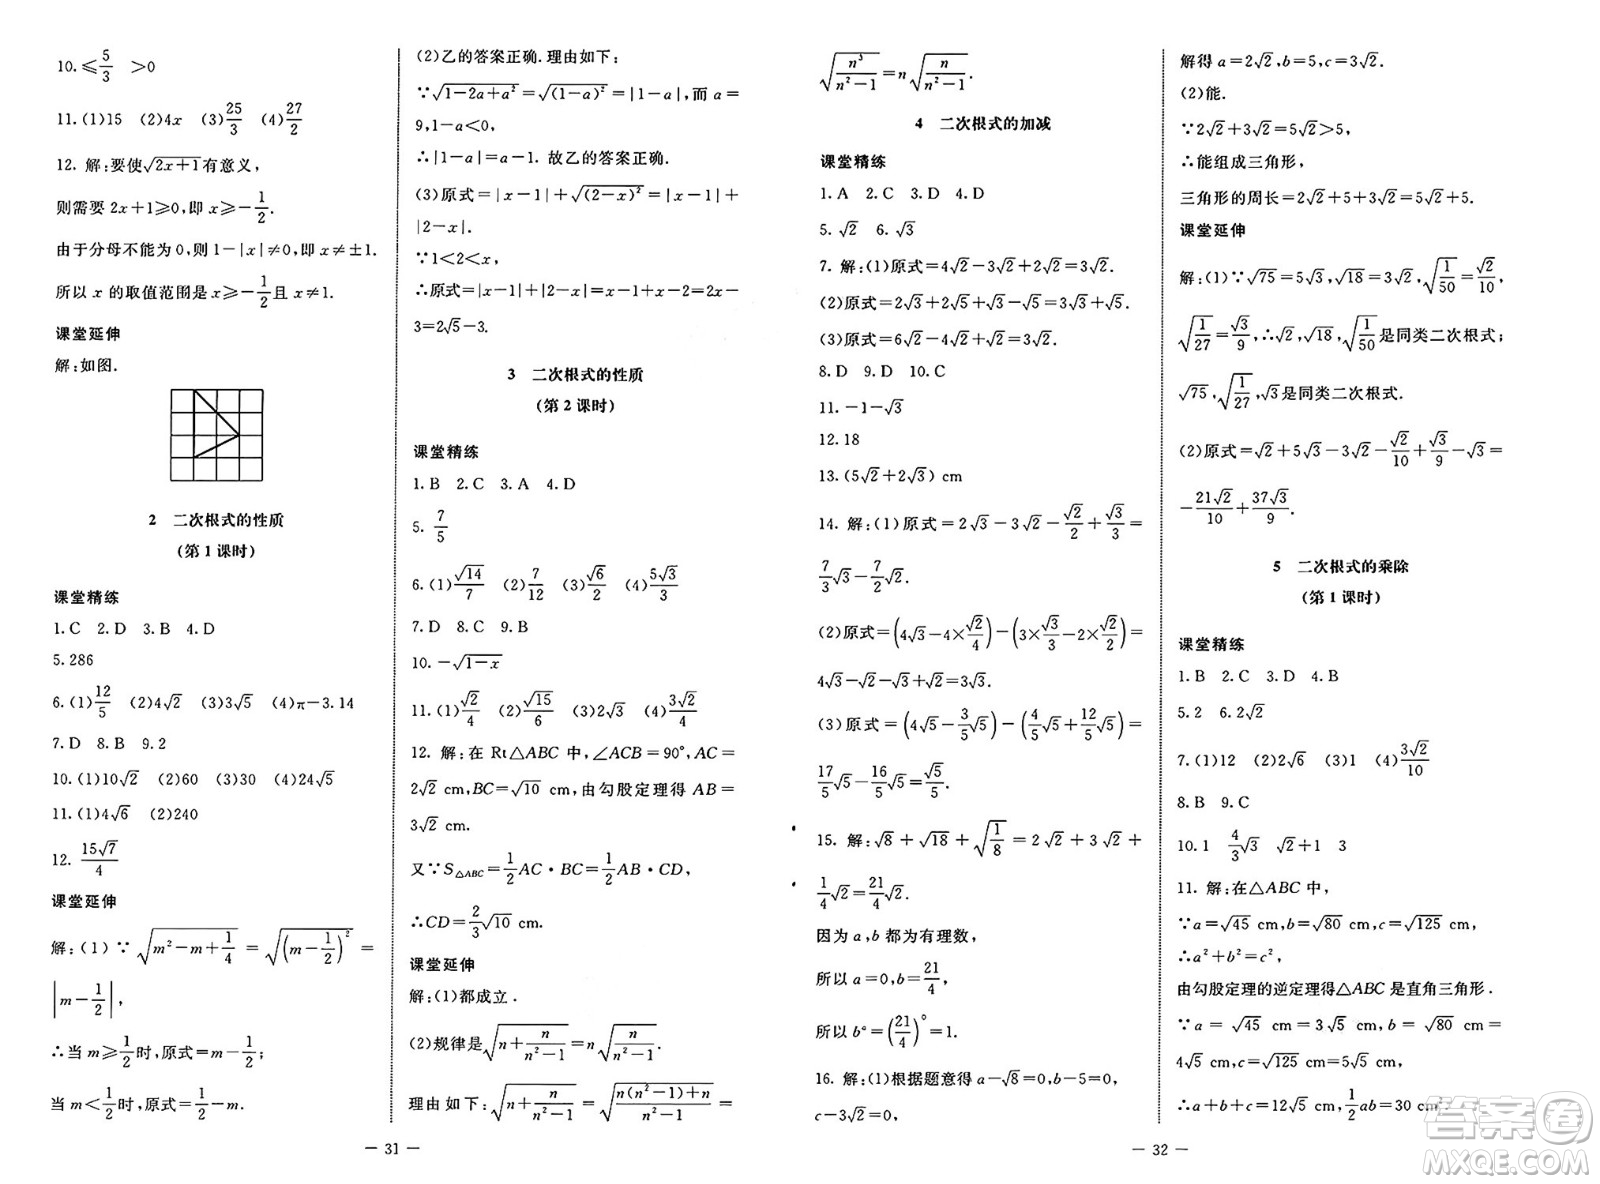 10. ≤5/3　>0
11. (1)15　(2)4x　(3)25/3　(4)27/2
12. 解:要使√(2x+1)有意义,
则需要 2x+1≥0,即 x≥-1/2.
由于分母不能为 0,则 1-|x|≠0,即 x≠±1.
所以 x 的取值范围是 x≥-1/2且 x≠1.
课堂延伸
解:如图.
2　二次根式的性质
(第 1 课时)
课堂精练
1. C　2. D　3. B　4. D
5. 286
6. (1)12/5　(2)4√2　(3)3√5　(4)π-3.14
7. D　8. B　9. 2
10. (1)10√2　(2)60　(3)30　(4)24√5
11. (1)4√6　(2)240
12. 15√7/4
课堂延伸
解:(1)∵√(m²-m+1/4)=√((m-1/2)²)=
|m-1/2|,
∴当 m≥1/2时,原式=m-1/2;
当 m<1/2时,原式=1/2-m.
(2)乙的答案正确.理由如下:
∵√(1-2a+a²)=√((1-a)²)=|1-a|,而 a=
9,1-a<0,
∴|1-a|=a-1. 故乙的答案正确.
(3)原式=|x-1|+√((2-x)²)=|x-1|+
|2-x|.
∵1<2<x,
∴原式=|x-1|+|2-x|=x-1+x-2=2x-
3=2√5-3.
3　二次根式的性质
(第 2 课时)
课堂精练
1. B　2. C　3. A　4. D
5. 7/5
6. (1)√14/7　(2)7/12　(3)√6/2　(4)5√3/3
7. D　8. C　9. B
10. -√(1-x)
11. (1)√2/4　(2)√15/6　(3)2√3　(4)3√2/4
12. 解:在 Rt△ABC 中,∠ACB=90°,AC=
2√2 cm,BC=√10 cm,由勾股定理得 AB=
3√2 cm.
又∵S△ABC=1/2AC·BC=1/2AB·CD,
∴CD=2/3√10 cm.
课堂延伸
解:(1)都成立.
(2)规律是√(n+n/(n²-1))=n√(n/(n²-1)).
理由如下:√(n+n/(n²-1))=√((n(n²-1)+n)/(n²-1))=
— 31 —
√(n³/(n²-1))=n√(n/(n²-1)).
4　二次根式的加减
课堂精练
1. A　2. C　3. D　4. D
5. √2　6. √3
7. 解:(1)原式=4√2-3√2+2√2=3√2.
(2)原式=2√3+2√5+√3-√5=3√3+√5.
(3)原式=6√2-4√2+√2=3√2.
8. D　9. D　10. C
11. -1-√3
12. 18
13. (5√2+2√3) cm
14. 解:(1)原式=2√3-3√2-√2/2+√3/3=
7/3√3-7/2√2.
(2)原式=(4√3-4×√2/4)-(3×√3/3-2×√2/2)=
4√3-√2-√3+√2=3√3.
(3)原式=(4√5-3/5√5)-(4/5√5+12/5√5)=
17/5√5-16/5√5=√5/5.
15. 解:√8+√18+√(1/8)=2√2+3√2+
1/4√2=21/4√2.
因为 a,b 都为有理数,
所以 a=0,b=21/4,
所以 bᵃ=(21/4)⁰=1.
16. 解:(1)根据题意得 a-√8=0,b-5=0,
c-3√2=0,
解得 a=2√2,b=5,c=3√2.
(2)能.
∵2√2+3√2=5√2>5,
∴能组成三角形,
三角形的周长=2√2+5+3√2=5√2+5.
课堂延伸
解:(1)∵√75=5√3,√18=3√2,√(1/50)=√2/10,
√(1/27)=√3/9,∴√2,√18,√(1/50)是同类二次根式;
√75,√(1/27),√3是同类二次根式.
(2)原式=√2+5√3-3√2-√2/10+√3/9-√3=
-21√2/10+37√3/9.
5　二次根式的乘除
(第 1 课时)
课堂精练
1. B　2. C　3. D　4. B
5. 2　6. 2√2
7. (1)12　(2)2√6　(3)1　(4)3√2/10
8. B　9. C
10. 1　4/3√3　√2+1　3
11. 解:在△ABC 中,
∵a=√45 cm,b=√80 cm,c=√125 cm,
∴a²+b²=c²,
由勾股定理的逆定理得△ABC 是直角三角形.
∵a=√45=3√5 cm,b=√80=
4√5 cm,c=√125 cm=5√5 cm,
∴a+b+c=12√5 cm,1/2ab=30 cm².
— 32 —
答案圈
MXQE.COM